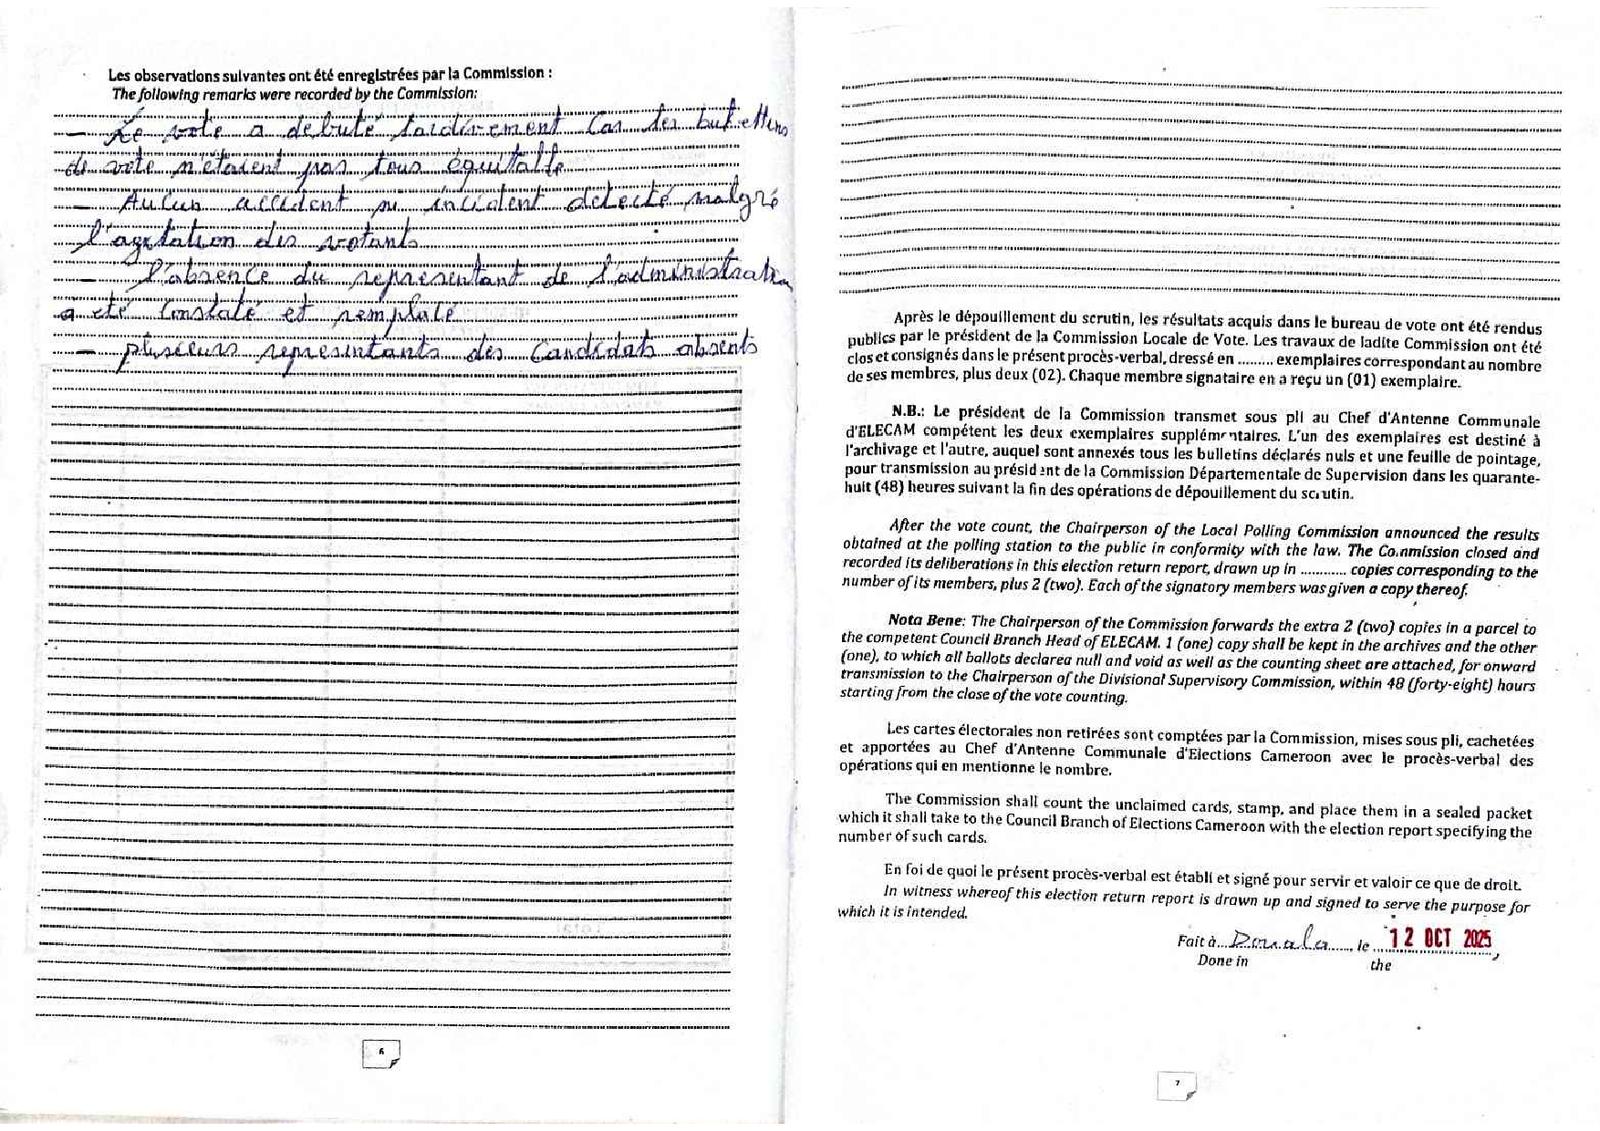 Les observations suivantes ont été enregistrées par la Commission :
The following remarks were recorded by the Commission:
- Le vote a debuté tardivement Car les bulletins
de vote n'étaient pas tous équitable
- Aucun accident ni incident detecté malgré
l'agitation des votants
- l'absence du representant de l'administration
a été Constaté et remplacé
- plusieurs representants des Candidats absents
6
Après le dépouillement du scrutin, les résultats acquis dans le bureau de vote ont été rendus
publics par le président de la Commission Locale de Vote. Les travaux de ladite Commission ont été
clos et consignés dans le présent procès-verbal, dressé en ......... exemplaires correspondant au nombre
de ses membres, plus deux (02). Chaque membre signataire en a reçu un (01) exemplaire.
N.B.: Le président de la Commission transmet sous pli au Chef d'Antenne Communale
d'ELECAM compétent les deux exemplaires supplémentaires. L'un des exemplaires est destiné à
l'archivage et l'autre, auquel sont annexés tous les bulletins déclarés nuls et une feuille de pointage,
pour transmission au président de la Commission Départementale de Supervision dans les quarante-
huit (48) heures suivant la fin des opérations de dépouillement du scrutin.
After the vote count, the Chairperson of the Local Polling Commission announced the results
obtained at the polling station to the public in conformity with the law. The Commission closed and
recorded its deliberations in this election return report, drawn up in ............ copies corresponding to the
number of its members, plus 2 (two). Each of the signatory members was given a copy thereof.
Nota Bene: The Chairperson of the Commission forwards the extra 2 (two) copies in a parcel to
the competent Council Branch Head of ELECAM. 1 (one) copy shall be kept in the archives and the other
(one), to which all ballots declared null and void as well as the counting sheet are attached, for onward
transmission to the Chairperson of the Divisional Supervisory Commission, within 48 (forty-eight) hours
starting from the close of the vote counting.
Les cartes électorales non retirées sont comptées par la Commission, mises sous pli, cachetées
et apportées au Chef d'Antenne Communale d'Elections Cameroon avec le procès-verbal des
opérations qui en mentionne le nombre.
The Commission shall count the unclaimed cards, stamp, and place them in a sealed packet
which it shall take to the Council Branch of Elections Cameroon with the election report specifying the
number of such cards.
En foi de quoi le présent procès-verbal est établi et signé pour servir et valoir ce que de droit.
In witness whereof this election return report is drawn up and signed to serve the purpose for
which it is intended.
Fait à... Douala ......, le ... 12 OCT 2025,
Done in the
7